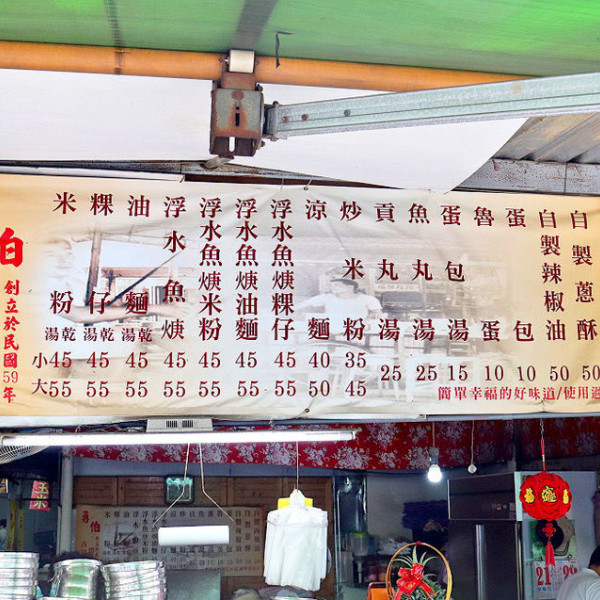 伯
創立於民國59年
米粉 湯乾 小45 大55
粿仔 湯乾 45 55
油麵 湯乾 45 55
浮水魚焿 45 55
浮水魚焿米粉 45 55
浮水魚焿油麵 45 55
浮水魚焿粿仔 45 55
涼麵 40 50
炒米粉 35 45
貢丸湯 25
魚丸湯 25
蛋包湯 15
魯蛋 10
蛋包 10
自製辣椒油 50
自製蔥酥 50
簡單幸福的好味道/使用過
伯
21